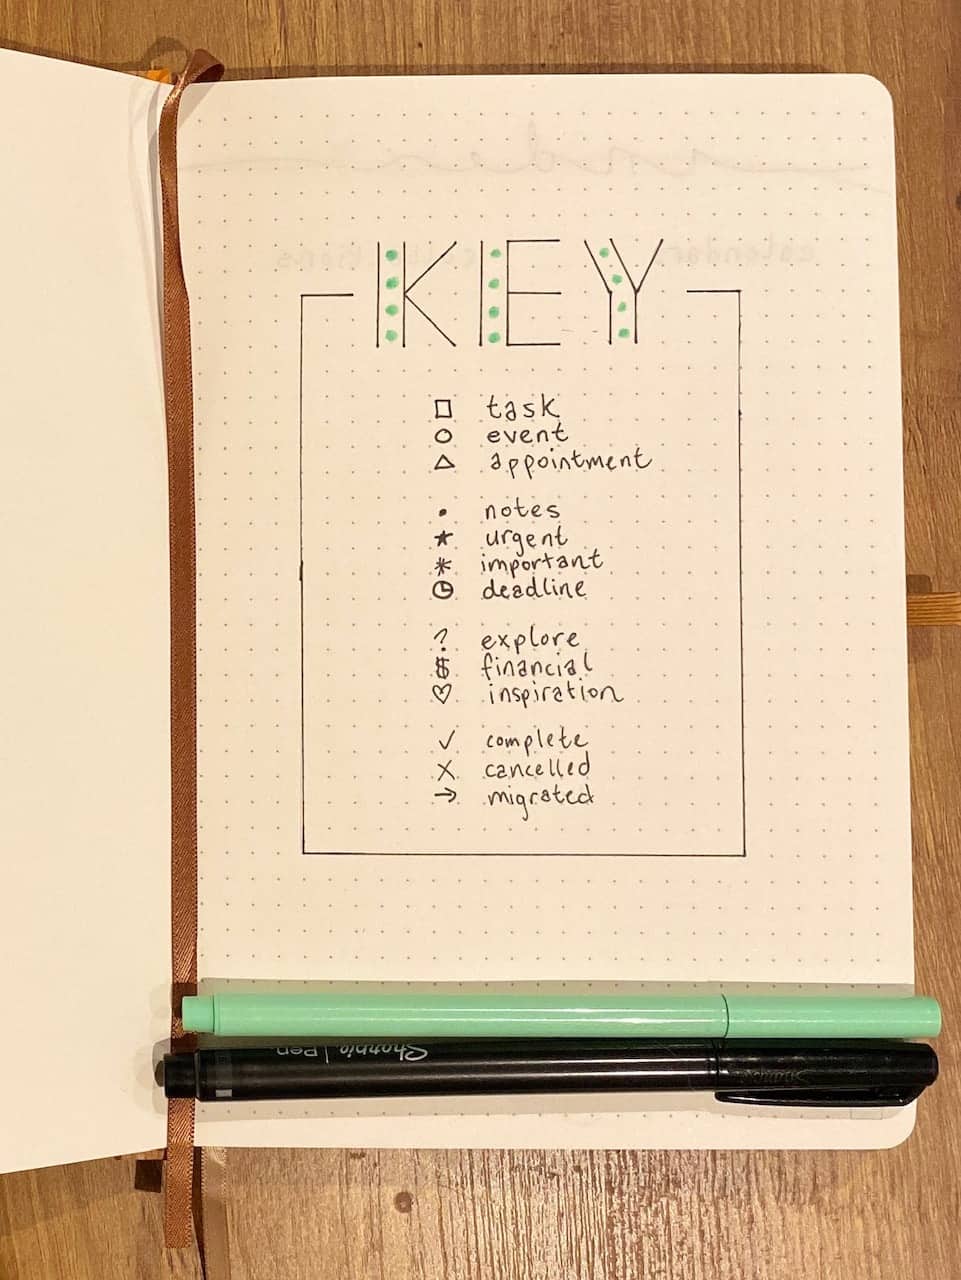 KEY
□ task
○ event
△ appointment
• notes
★ urgent
* important
◷ deadline
? explore
$ financial
♡ inspiration
✓ complete
X cancelled
→ migrated
Sharpie | Pen